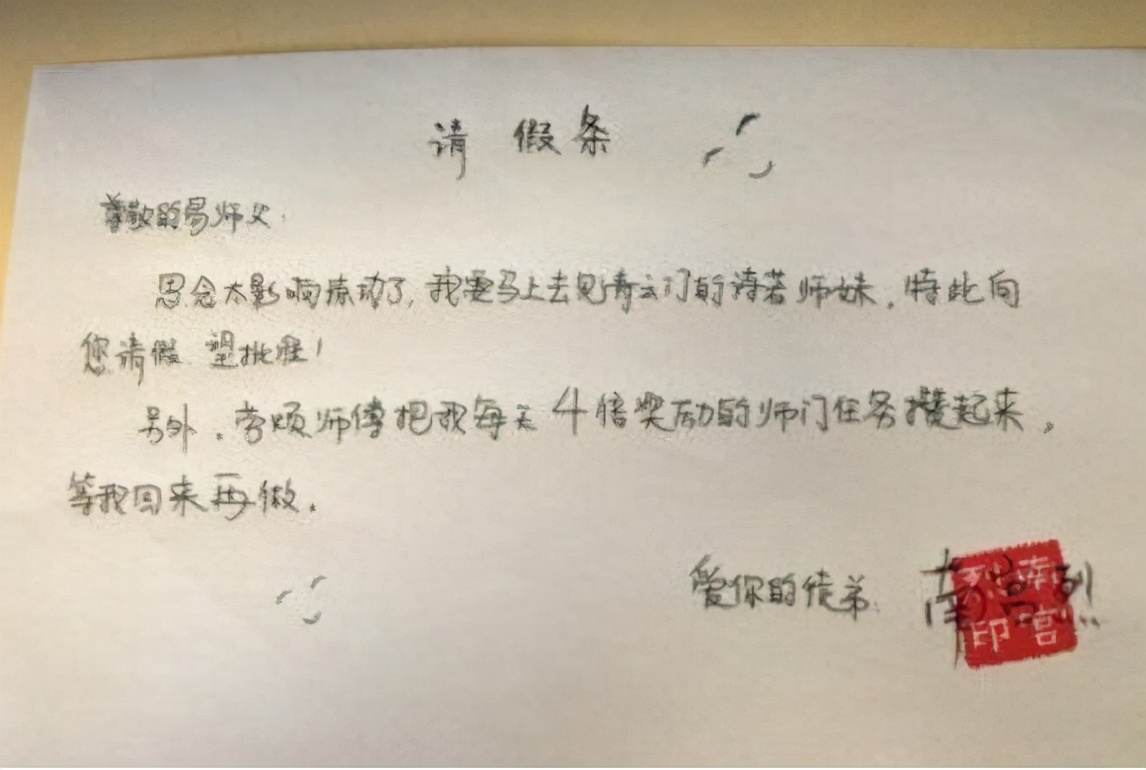 请假条
尊敬的易师父：
思念太影响练功了，我要马上去见青云门的诗若师妹，特此向
您请假 望批准！
另外，劳烦师傅把我每天4倍奖励的师门任务攒起来，
等我回来再做。
爱你的徒弟：南宫烈
南宫
印